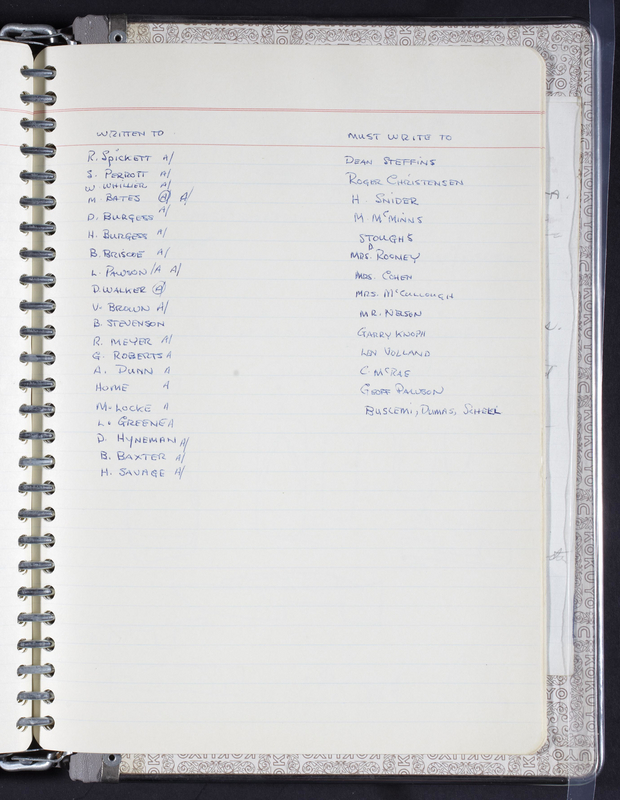 WRITTEN TO
R. SPICKETT A/
S. PERROTT A/
W. WHILLIER A/
M. BATES A A/
D. BURGESS A/
H. BURGESS A/
B. BRISCOE A/
L. PAWSON /A A/
D. WALKER A/
V. BROWN A/
B. STEVENSON
R. MEYER A/
G. ROBERTS A
A. DUNN A
HOME A
M. LOCKE A
L. GREENE A
D. HYNEMAN A/
B. BAXTER A/
H. SAVAGE A/
MUST WRITE TO
DEAN STEFFINS
ROGER CHRISTENSEN
H SNIDER
M McMINNS
STOUGHS
MRS. D ROONEY
MRS. COHEN
MRS. McCULLOUGH
MR. NELSON
GARRY KNOPH
LEN VOLLAND
C McRAE
GEOFF PAWSON
BUSCEMI, DUMAS, SCHEEL